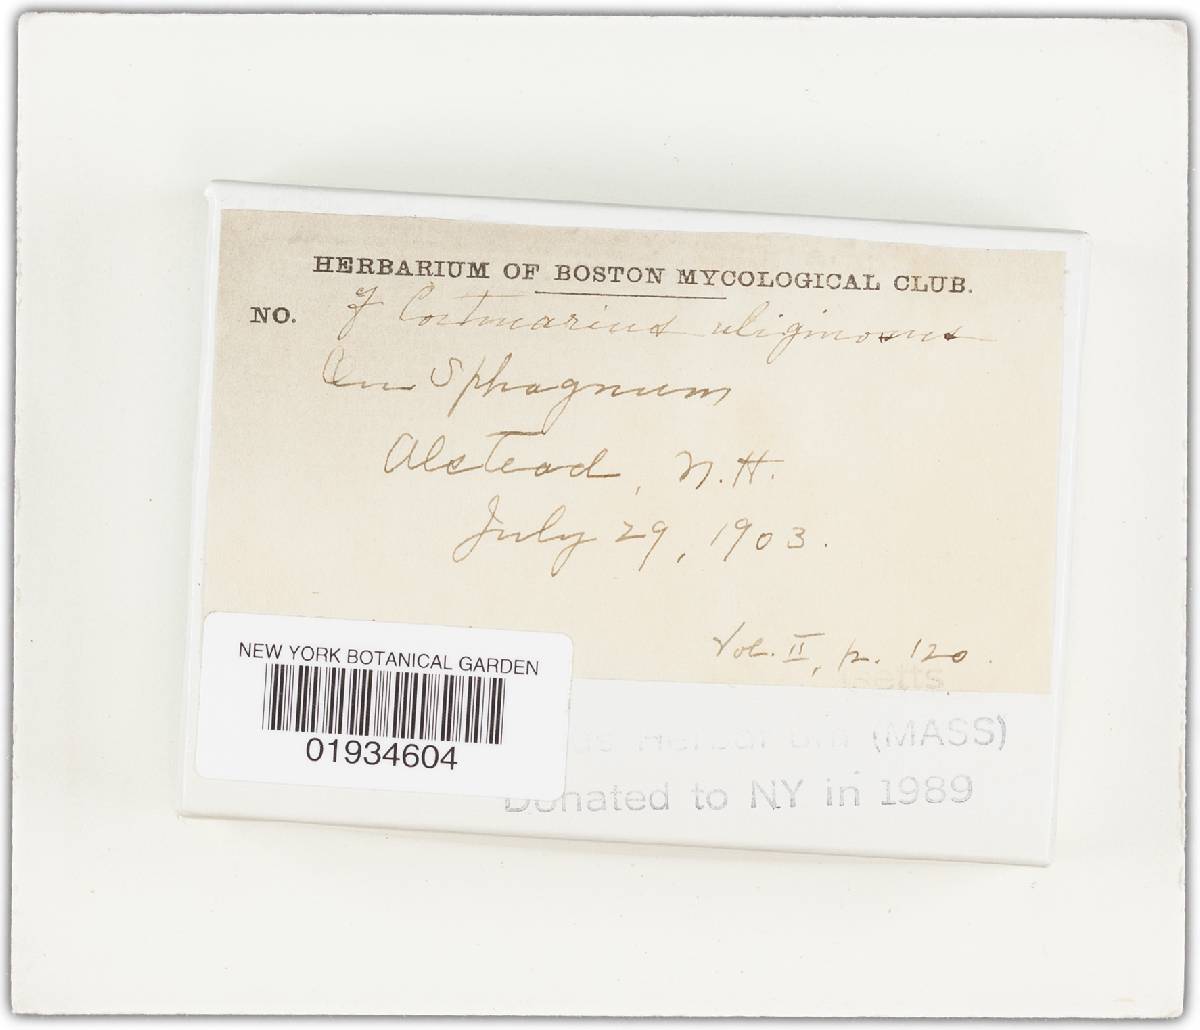 HERBARIUM OF BOSTON MYCOLOGICAL CLUB.
NO. Cortinarius uliginosus
On Sphagnum
Alstead, N.H.
July 29, 1903.
Vol. II, p. 120.
NEW YORK BOTANICAL GARDEN
01934604
setts
us Herbarium (MASS)
Donated to NY in 1989